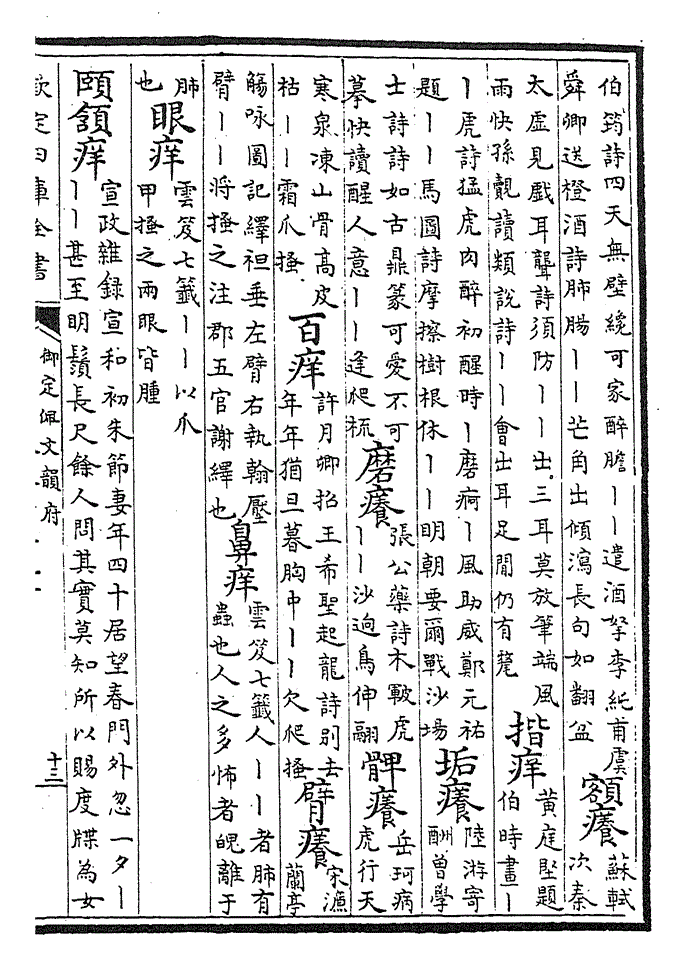 伯筠詩四天無壁纔可家醉膽丨丨遣酒拏李純甫虞
舜卿送橙酒詩肺腸丨丨芒角出傾瀉長句如翻盆
額癢
蘇軾
次秦
太虛見戲耳聾詩須防丨丨出三耳莫放筆端風
雨快孫覿讀類說詩丨丨會出耳足間仍有氂
揩痒
黄庭堅題
伯時畫丨
丨虎詩猛虎肉醉初醒時丨磨痾丨風助威鄭元祐
題丨丨馬圖詩摩擦樹根休丨丨明朝要爾戰沙場
垢癢
陸游寄
酬曽學
士詩詩如古鼎篆可愛不可
摹快讀醒人意丨丨逢爬梳
磨癢
張公藥詩木皸虎
丨丨沙逈鳥伸翮
髀癢
岳珂病
虎行天
寒泉凍山骨高皮
枯丨丨霜爪搔
百痒
許月卿招王希聖起龍詩别去
年年猶旦暮胸中丨丨欠爬搔
臂癢
宋濂
蘭亭
觴咏圖記繹袒垂左臂右執翰壓
臂丨丨將搔之注郡五官謝繹也
鼻痒
雲笈七籤人丨丨者肺有
蟲也人之多怖者魄離于
肺
也
眼痒
雲笈七籤丨丨以爪
甲搔之兩眼皆腫
頤頷痒
宣政雜録宣和初朱節妻年四十居望春門外忽一夕丨
丨丨甚至明鬚長尺餘人問其實莫知所以賜度牒為女
欽定四庫全書
御定佩文韻府
十三